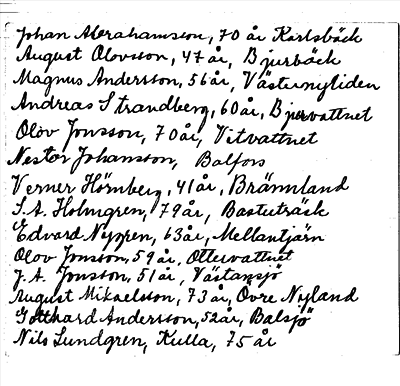 Johan Abrahamsson, 70 år Karlsbäck
August Olovsson, 47 år, Bjurbäck
Magnus Andersson, 56 år, Västernyliden
Andreas Strandberg, 60 år, Bjurvattnet
Olov Jonsson, 70 år, Vitvattnet
Nestor Johansson, Balfors
Verner Hörnberg, 41 år, Brännland
S.A. Holmgren, 79 år, Bastuträsk
Edvard Nygren, 63 år, Mellantjärn
Olov Jonsson, 59 år, Ottervattnet
J.A. Jonsson, 51 år, Västansjö
August Mikaelsson, 73 år, Övre Nyland
Gotthard Andersson, 52 år, Balsjö
Nils Lundgren, Kulla, 75 år